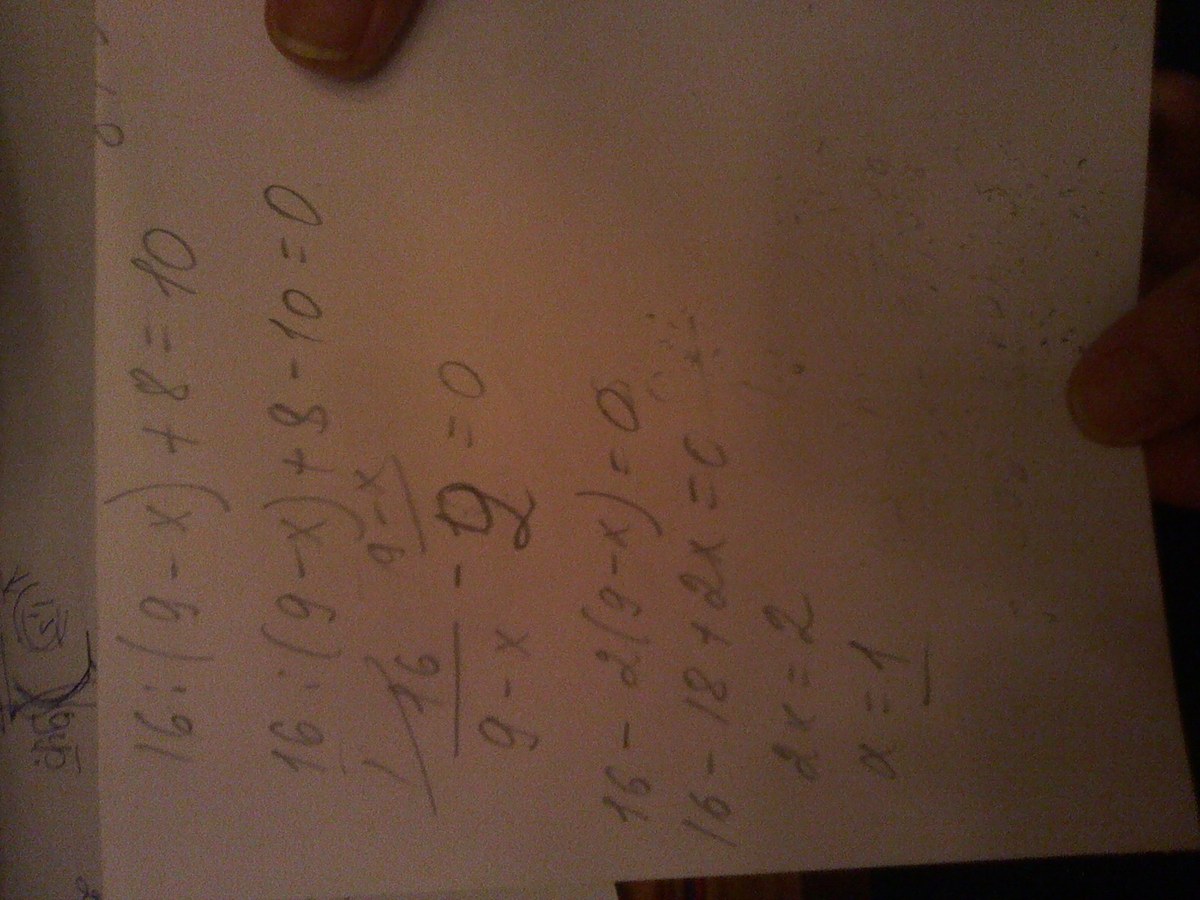 16 : (9 - x) + 8 = 10
16 : (9 - x) + 8 - 10 = 0
1/ 16 9-x/
— - 2 = 0
9 - x
16 - 2(9-x) = 0
16 - 18 + 2x = 0
2x = 2
x = 1